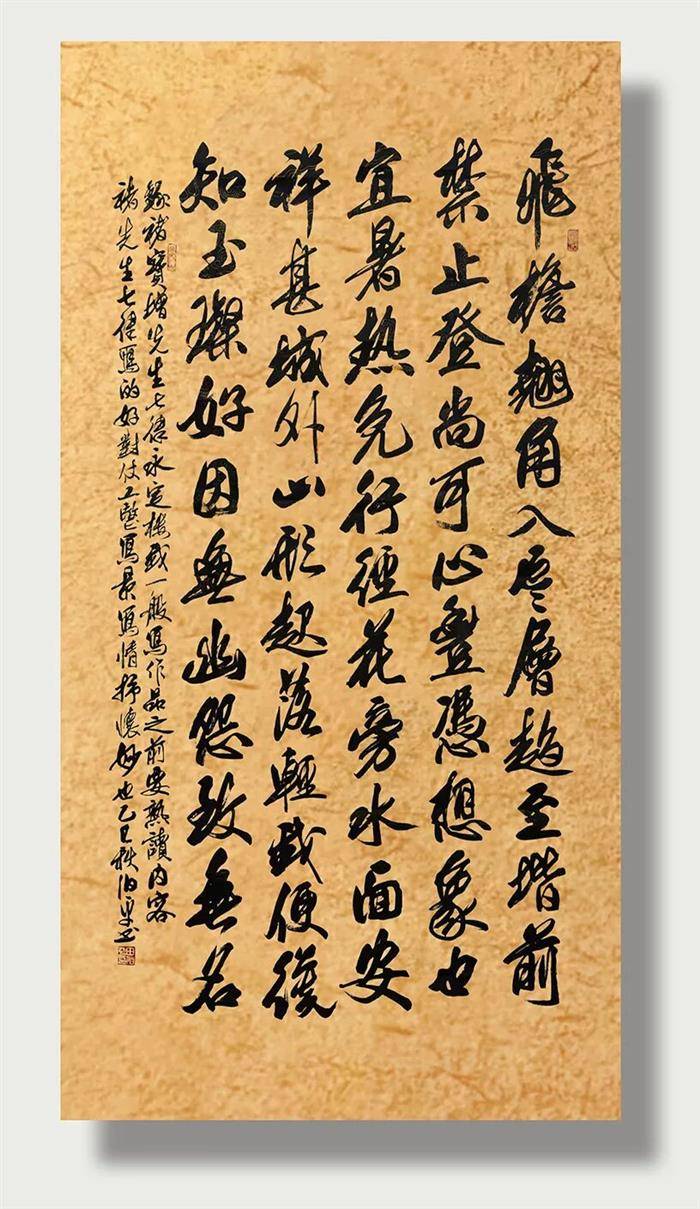 飛檐翹角入雲層趨至堦前
禁止登尚可心疊憑想象也
宜暑熱免行徑花旁水面安
祥甚城外山形起落輕我便後
知玉璨好因無幽怨致無名
錄褚寶增先生七律永定樓我一般寫作品之前要熟讀內容
褚先生七律寫的好對仗工整寫景寫情抒懷妙也乙巳秋伯平书